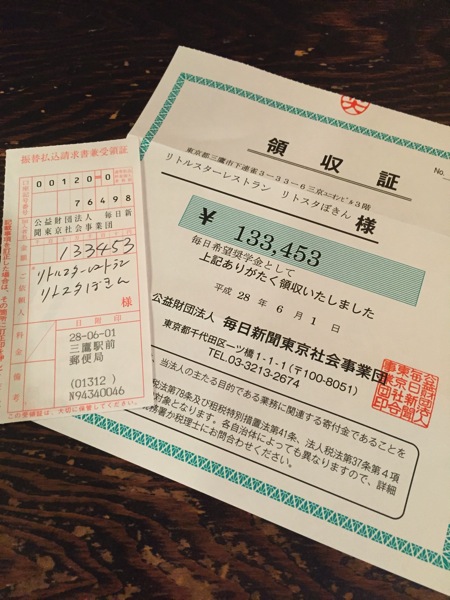 振替払込請求書兼受領証
00120=0
76498
公益財団法人 毎日新
聞東京社会事業団
133453
リトルスターレストラン
リトスタぼきん
様
ご依頼人
日附印
28-06-01
三鷹駅前
郵便局
(01312)
N94340046
料金
備考
この受領証は、大切に保管してください。
領収証
No.
東京都三鷹市下連雀3-33-6三京ユニオンビル3階
リトルスターレストラン リトスタぼきん 様
¥ 133,453
毎日希望奨学金として
上記ありがたく領収いたしました
平成 28 年 6 月 1 日
公益財団法人 毎日新聞東京社会事業団
東京都千代田区一ツ橋1-1-1(〒100-8051)
TEL 03-3213-2674
当法人の主たる目的である業務に関連する寄付金であることを
税法第78条及び租税特別措置法第41条、法人税法第37条第4項
対象となります。各自治体によっても異なりますので、詳細
務署か税理士にお問合わせください。